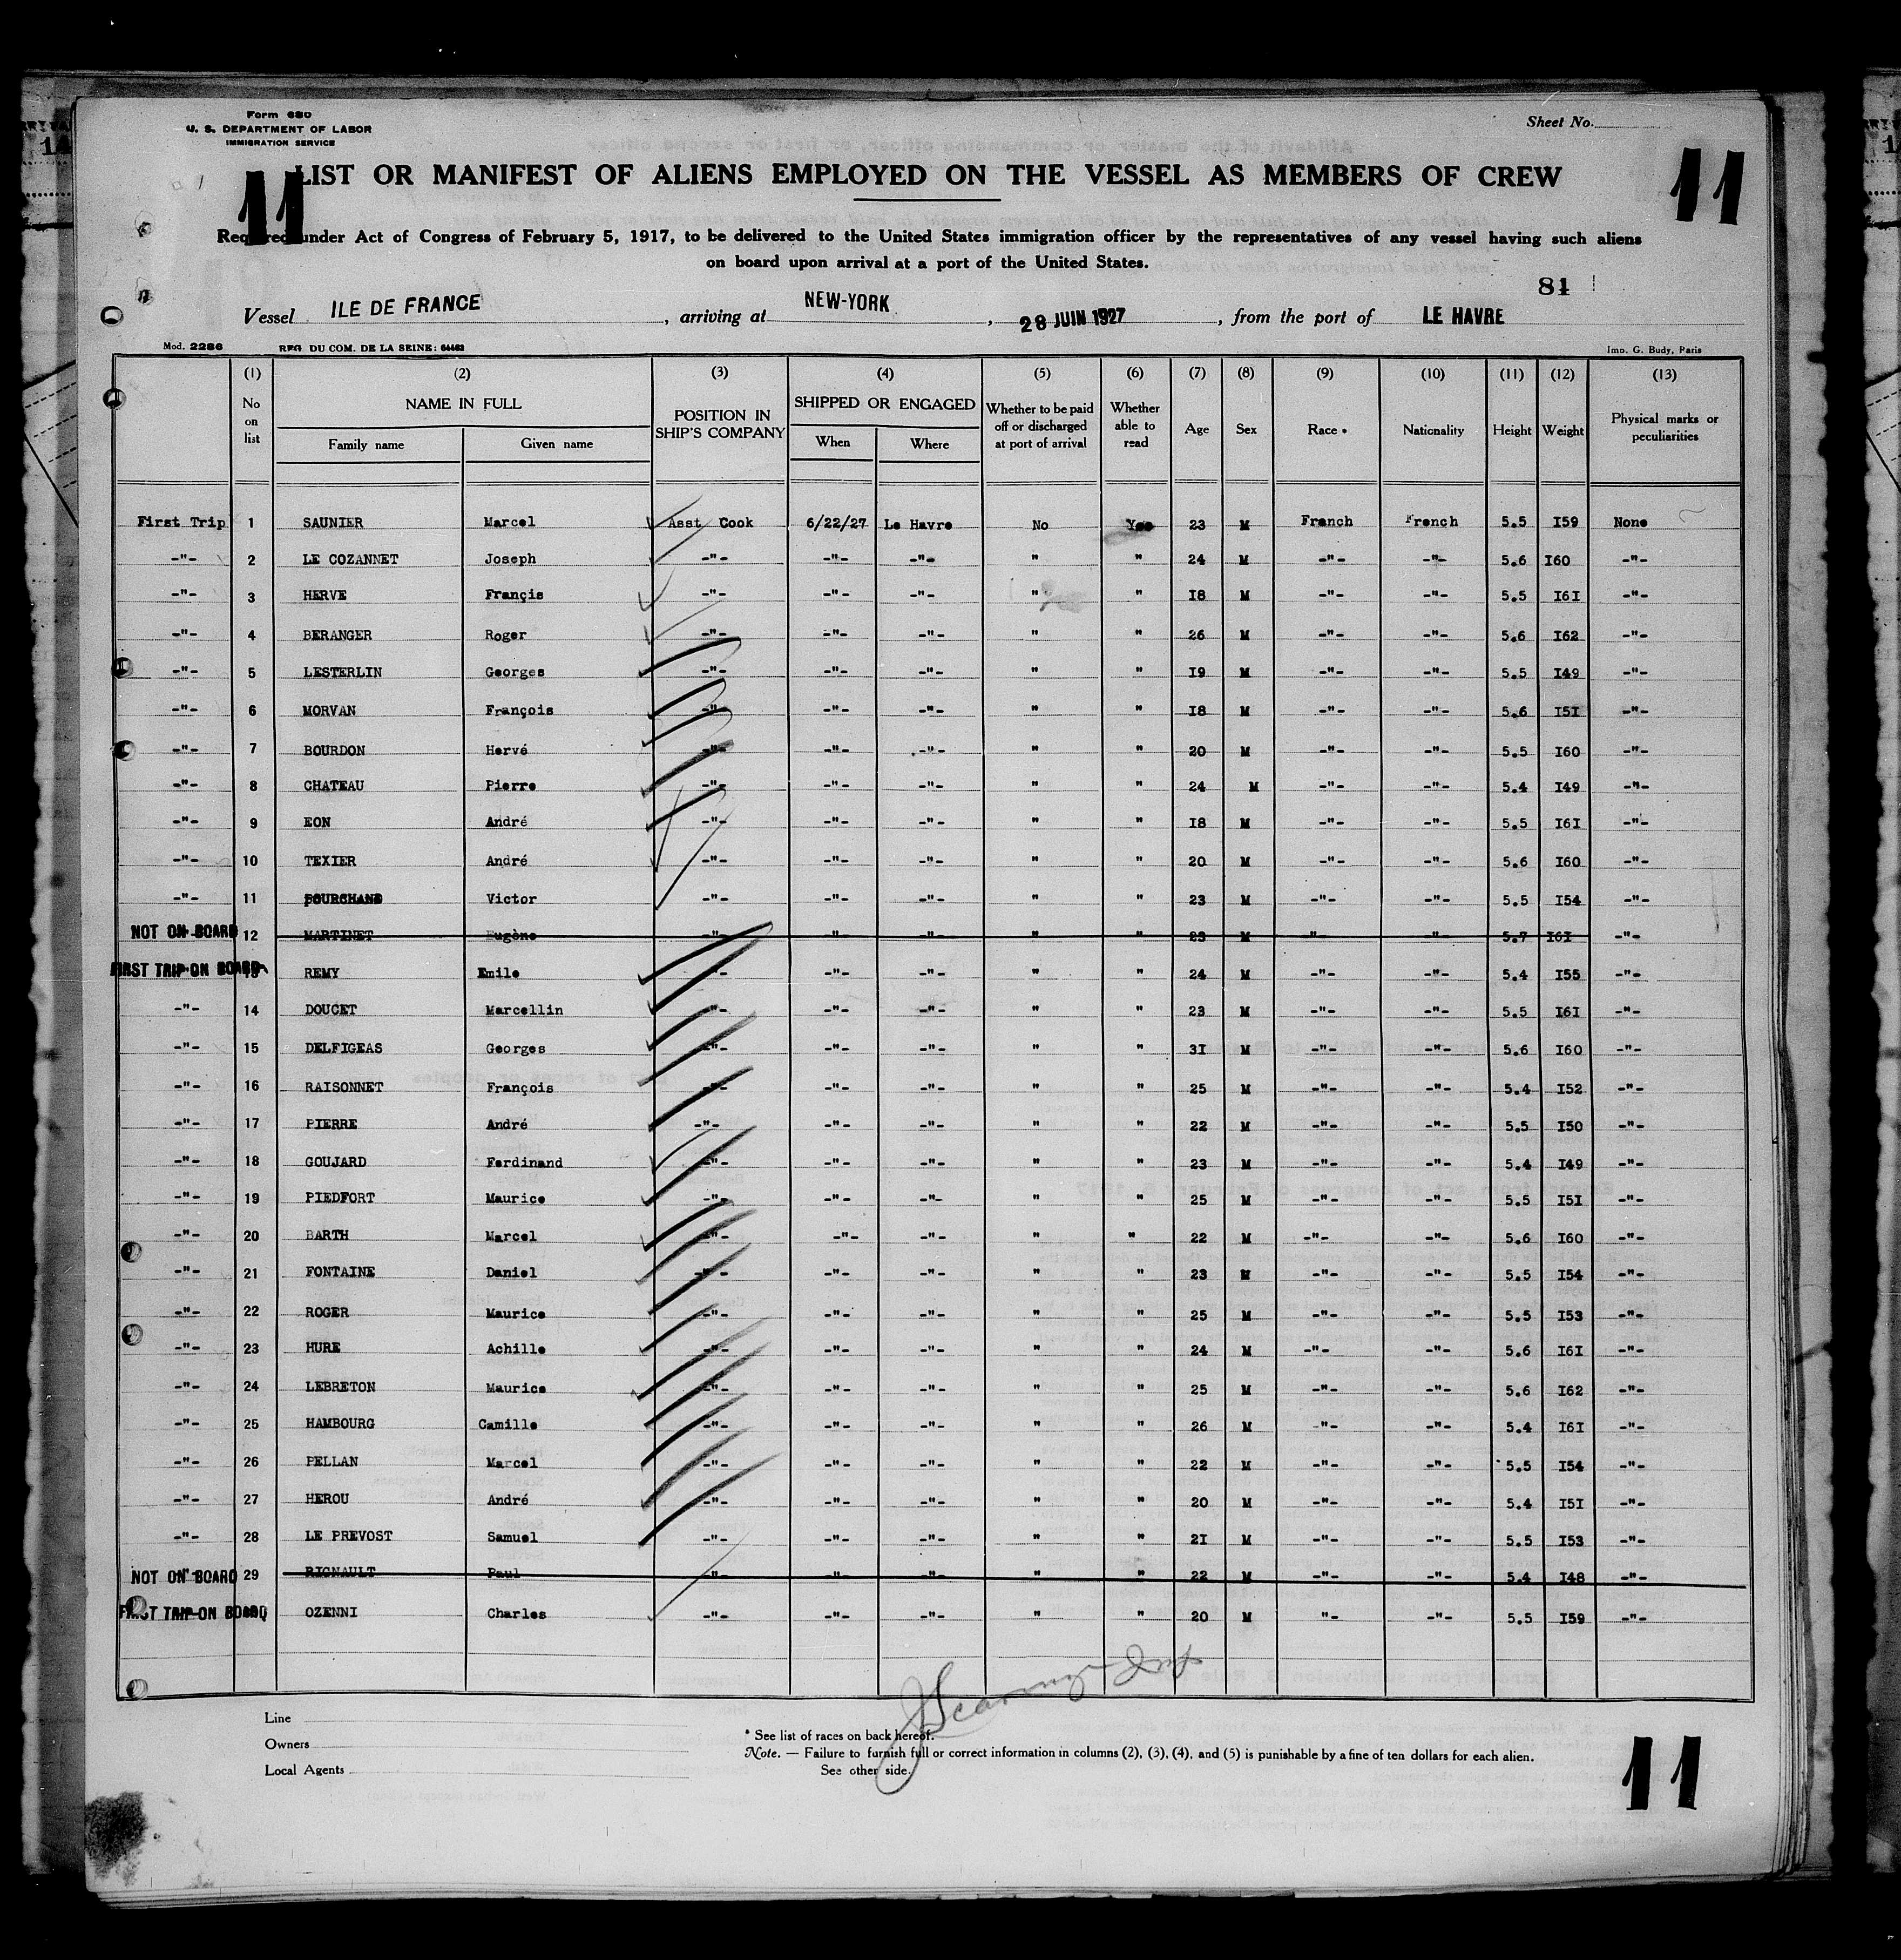 Form 680
U. S. DEPARTMENT OF LABOR
IMMIGRATION SERVICE
Sheet No.
11 11
LIST OR MANIFEST OF ALIENS EMPLOYED ON THE VESSEL AS MEMBERS OF CREW
Required under Act of Congress of February 5, 1917, to be delivered to the United States immigration officer by the representatives of any vessel having such aliens
on board upon arrival at a port of the United States.
81
Vessel ILE DE FRANCE, arriving at NEW-YORK, 28 JUIN 1927, from the port of LE HAVRE
Mod. 2286 REG. DU COM. DE LA SEINE: 64463 Imp. G. Budy, Paris
(1) (2) (3) (4) (5) (6) (7) (8) (9) (10) (11) (12) (13)
No on list NAME IN FULL Family name Given name POSITION IN SHIP'S COMPANY SHIPPED OR ENGAGED When Where Whether to be paid off or discharged at port of arrival Whether able to read Age Sex Race * Nationality Height Weight Physical marks or peculiarities
First Trip 1 SAUNIER Marcel Asst Cook 6/22/27 Le Havre No Yes 23 M Franch French 5.5 I59 None
-"- 2 LE COZANNET Joseph -"- -"- -"- " " 24 M -"- -"- 5.6 I60 -"-
-"- 3 HERVE Françis -"- -"- -"- " " I8 M -"- -"- 5.5 I6I -"-
-"- 4 BERANGER Roger -"- -"- -"- " " 26 M -"- -"- 5.6 I62 -"-
-"- 5 LESTERLIN Georges -"- -"- -"- " " I9 M -"- -"- 5.5 I49 -"-
-"- 6 MORVAN François -"- -"- -"- " " I8 M -"- -"- 5.6 I5I -"-
-"- 7 BOURDON Hervé -"- -"- -"- " " 20 M -"- -"- 5.5 I60 -"-
-"- 8 CHATEAU Pierre -"- -"- -"- " " 24 M -"- -"- 5.4 I49 -"-
-"- 9 EON André -"- -"- -"- " " I8 M -"- -"- 5.5 I6I -"-
-"- 10 TEXIER André -"- -"- -"- " " 20 M -"- -"- 5.6 I60 -"-
-"- 11 Victor -"- -"- -"- " " 23 M -"- -"- 5.5 I54 -"-
NOT ON BOARD 12 MARTINET Eugène -"- -"- -"- " " 23 M -"- -"- 5.7 I6I -"-
FIRST TRIP ON BOARD 13 REMY Emile -"- -"- -"- " " 24 M -"- -"- 5.4 I55 -"-
-"- 14 DOUCET Marcellin -"- -"- -"- " " 23 M -"- -"- 5.5 I6I -"-
-"- 15 DELFIGEAS Georges -"- -"- -"- " " 3I M -"- -"- 5.6 I60 -"-
-"- 16 RAISONNET François -"- -"- -"- " " 25 M -"- -"- 5.4 I52 -"-
-"- 17 PIERRE André -"- -"- -"- " " 22 M -"- -"- 5.5 I50 -"-
-"- 18 GOUJARD Ferdinand -"- -"- -"- " " 23 M -"- -"- 5.4 I49 -"-
-"- 19 PIEDFORT Maurice -"- -"- -"- " " 25 M -"- -"- 5.5 I5I -"-
-"- 20 BARTH Marcel -"- -"- -"- " " 22 M -"- -"- 5.6 I60 -"-
-"- 21 FONTAINE Daniel -"- -"- -"- " " 23 M -"- -"- 5.5 I54 -"-
-"- 22 ROGER Maurice -"- -"- -"- " " 25 M -"- -"- 5.5 I53 -"-
-"- 23 HURE Achille -"- -"- -"- " " 24 M -"- -"- 5.6 I6I -"-
-"- 24 LEBRETON Maurice -"- -"- -"- " " 25 M -"- -"- 5.6 I62 -"-
-"- 25 HAMBOURG Camille -"- -"- -"- " " 26 M -"- -"- 5.4 I6I -"-
-"- 26 PELLAN Marcel -"- -"- -"- " " 22 M -"- -"- 5.5 I54 -"-
-"- 27 HEROU André -"- -"- -"- " " 20 M -"- -"- 5.4 I5I -"-
-"- 28 LE PREVOST Samuel -"- -"- -"- " " 2I M -"- -"- 5.5 I53 -"-
NOT ON BOARD 29 RIGNAULT Paul -"- -"- -"- " " 22 M -"- -"- 5.4 I48 -"-
FIRST TRIP ON BOARD OZENNI Charles -"- -"- -"- " " 20 M "- -"- 5.5 I59 -"-
Line
Owners
Local Agents
* See list of races on back hereof.
Note. — Failure to furnish full or correct information in columns (2), (3), (4), and (5) is punishable by a fine of ten dollars for each alien.
See other side.
11